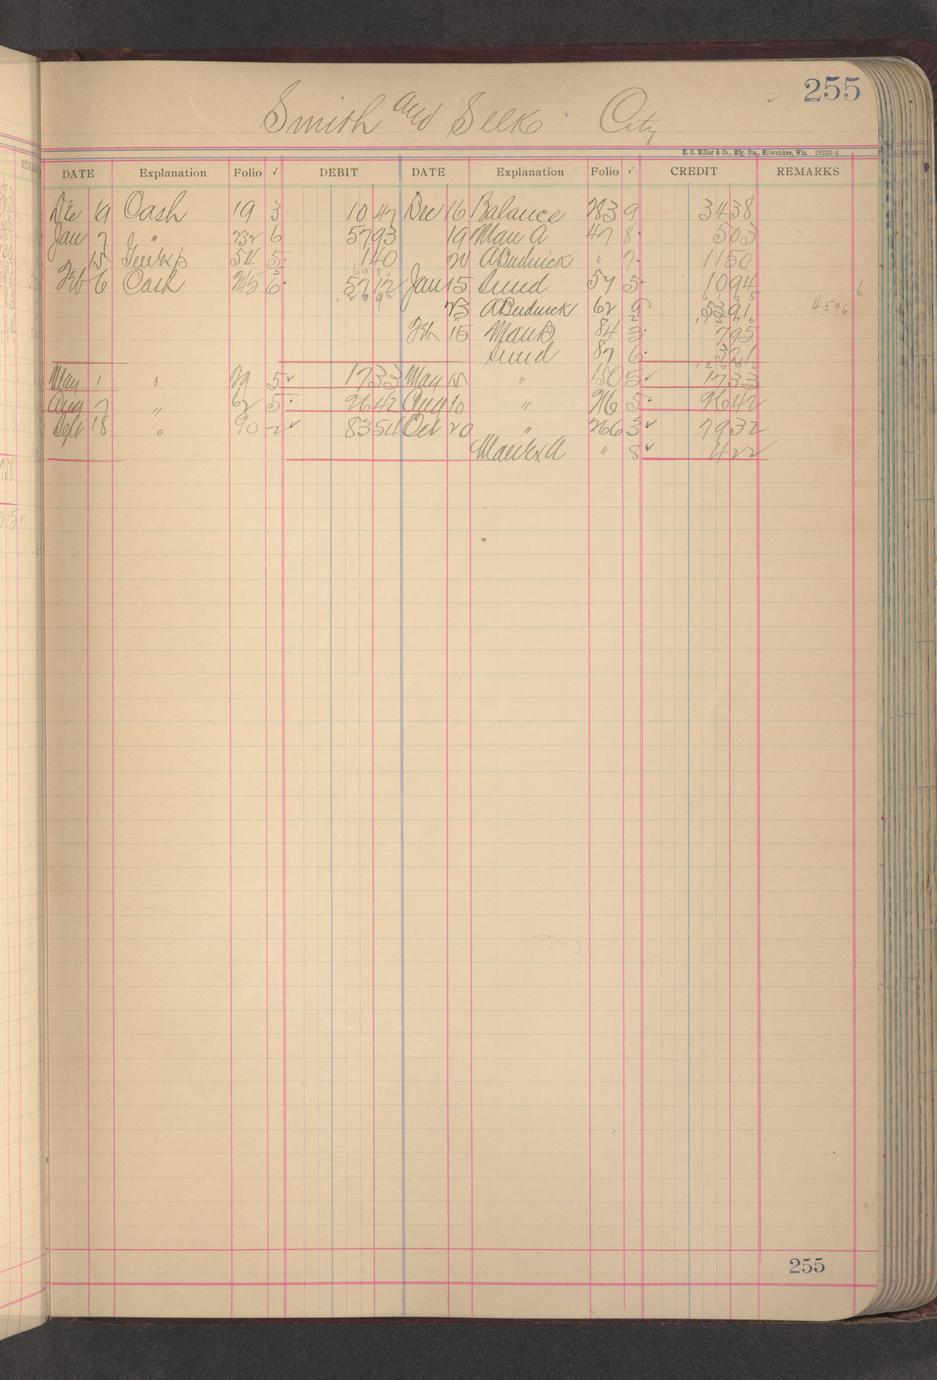 255
Smith and Selk City
H. C. Miller & Co., Mfg. Sta., Milwaukee, Wis.
DATE Explanation Folio ✓ DEBIT DATE Explanation Folio ✓ CREDIT REMARKS
Dec 19 Cash 19 3 10 47 Dec 16 Balance 283 9 34 38
Jan 7 " 232 6 57 93 19 Man A 47 8 5 03
15 54 5 1 40 20 A Budnick " 7 11 50
Feb 6 Cash 245 6 57 12 Jan 15 Sund 57 5 10 94
23 A Budnick 62 9 53 91 45 96
Feb 15 Man B 84 3 7 95
Sund 87 6 3 21
May 1 " 29 5 ✓ 17 33 May 15 " 150 5 ✓ 17 33
Aug 7 " 62 5 26 42 Aug 10 " 216 5 26 42
Sept 18 " 90 2 ✓ 83 54 Oct 20 " 266 3 ✓ 79 32
Man Ex A " 8 ✓ 4 22
255